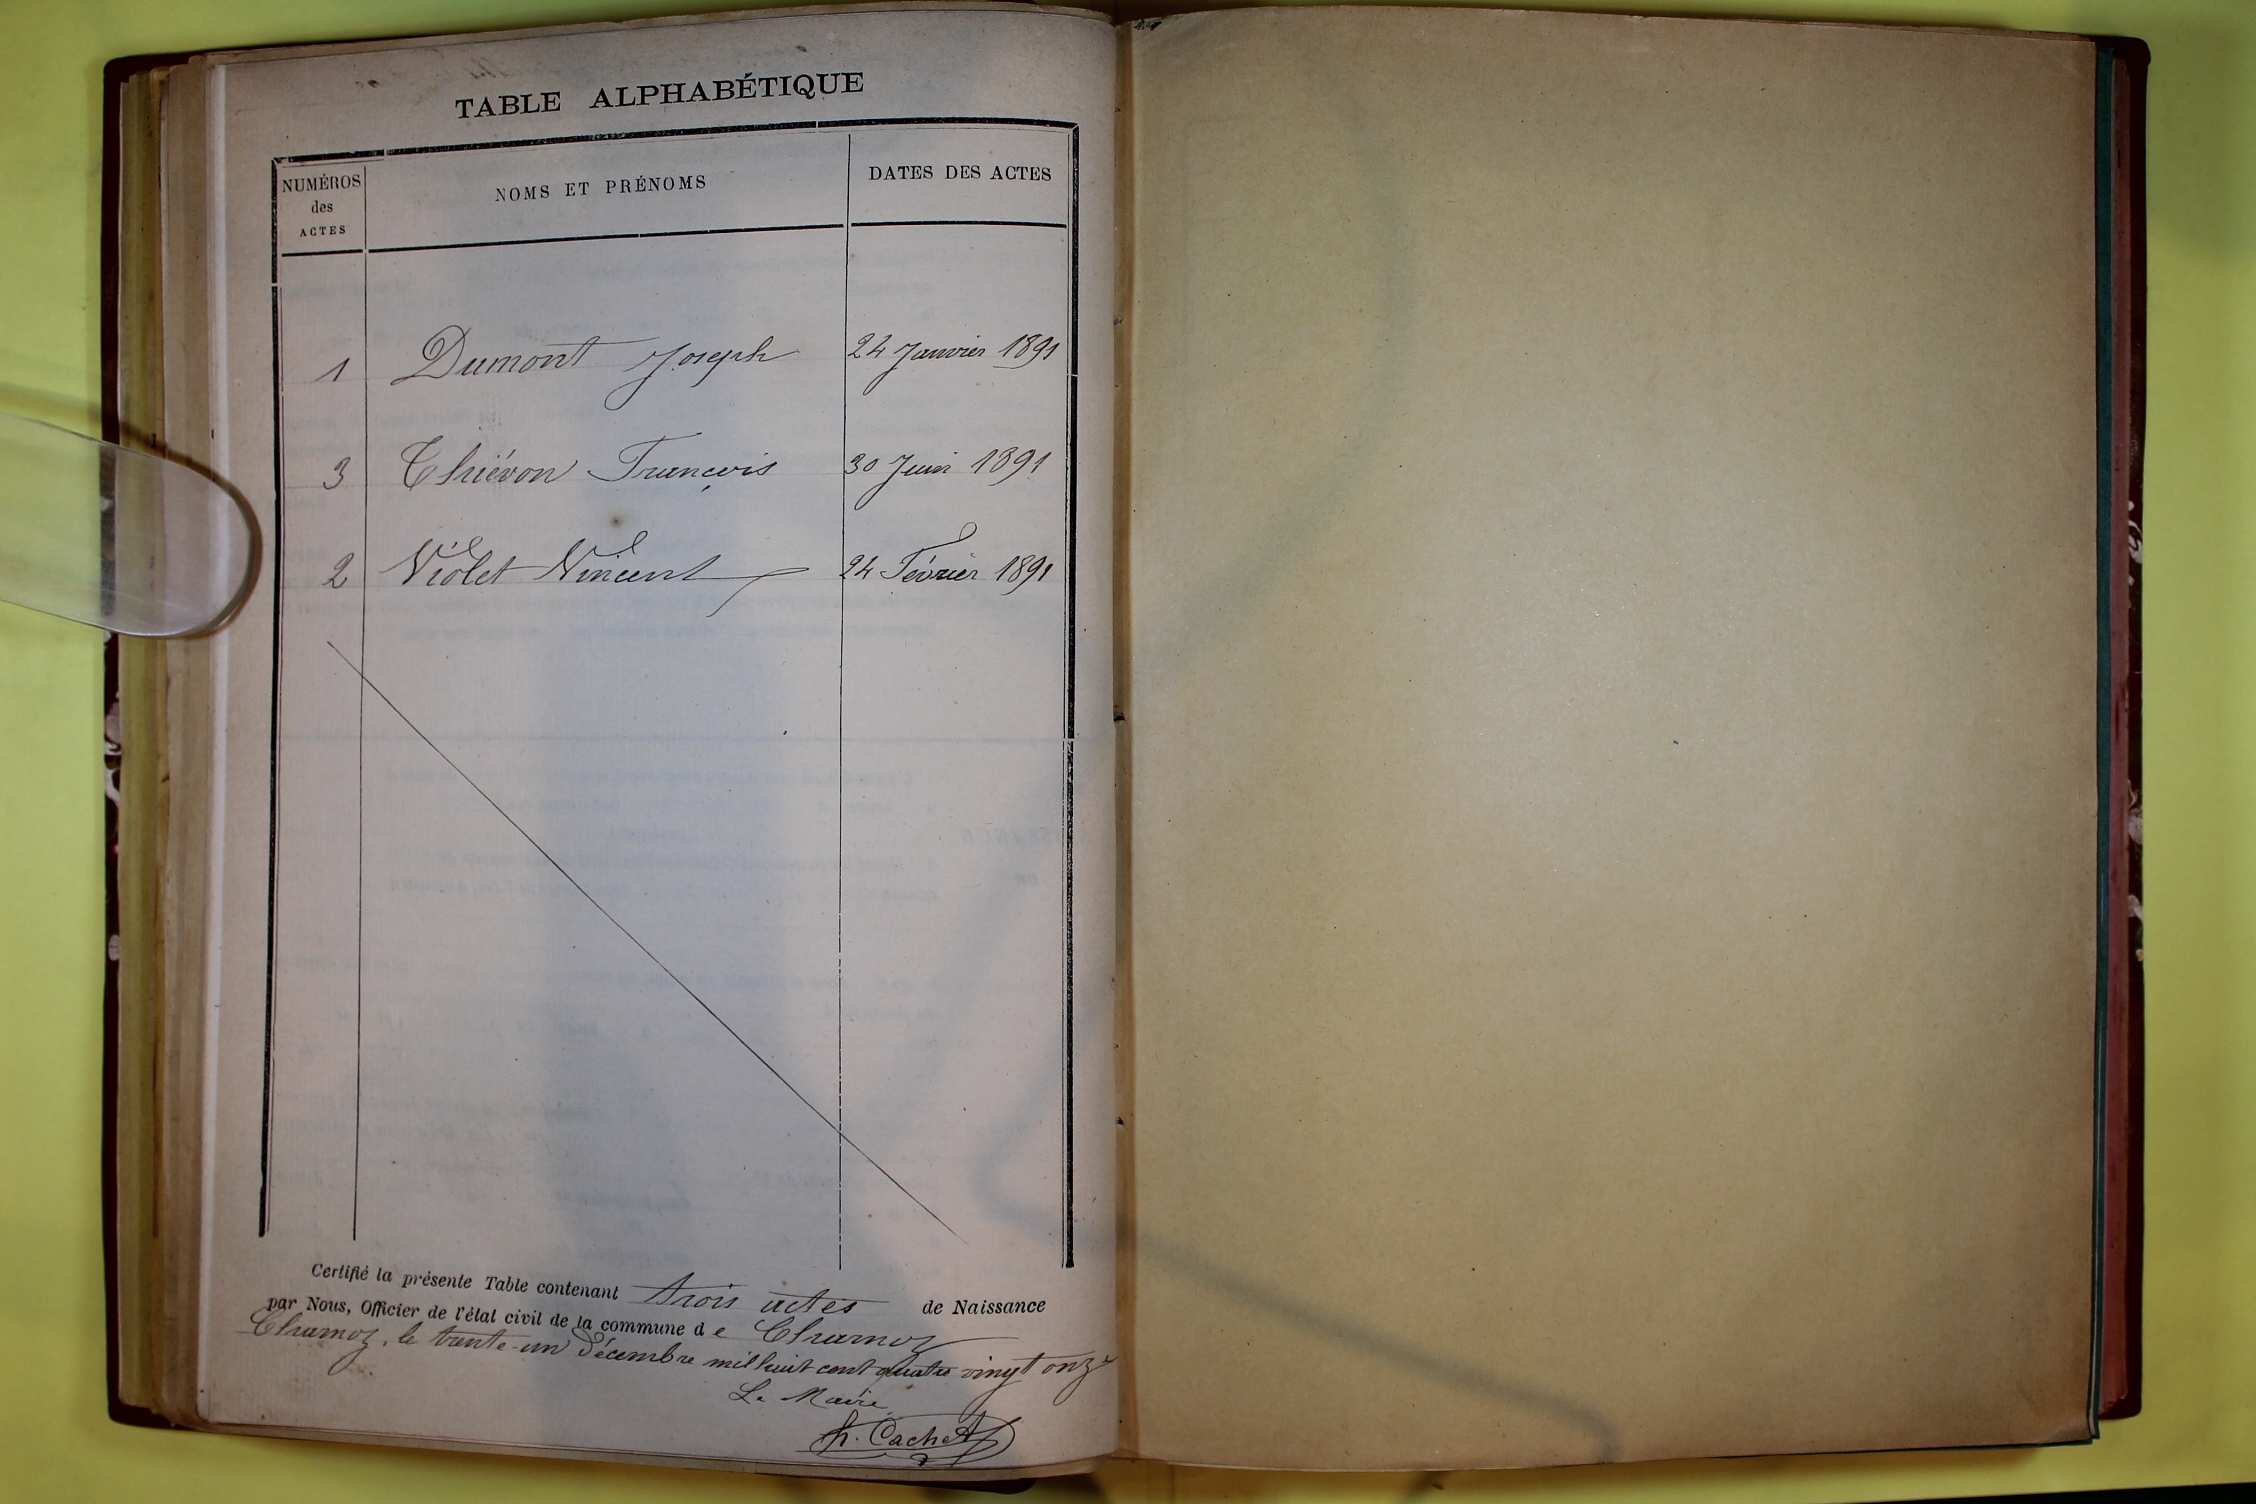 TABLE ALPHABÉTIQUE
NUMÉROS des ACTES
NOMS ET PRÉNOMS
DATES DES ACTES
1 Dumont Joseph 24 Janvier 1891
3 Thiévon François 30 Juin 1891
2 Violet Vincent 24 Février 1891
Certifié la présente Table contenant trois actes de Naissance
par Nous, Officier de l'état civil de la commune d e Charnoz
Charnoz, le trente-un Décembre mil huit cent quatre vingt onze
Le Maire
h. Cachet